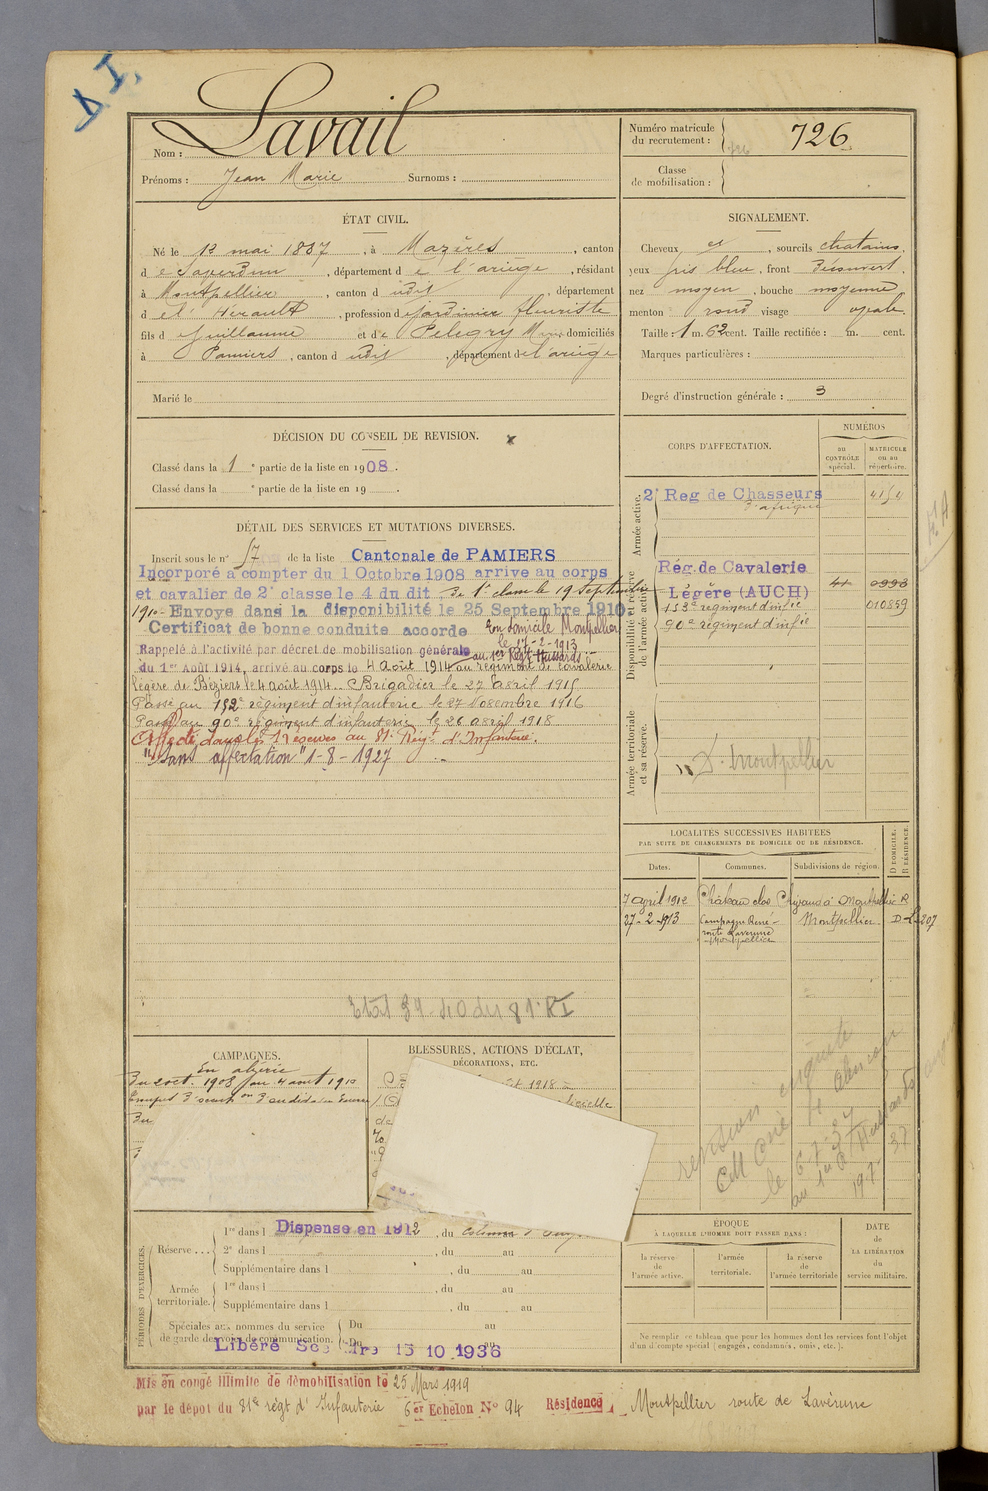 D I.
Nom : Lavail
Prénoms : Jean Marie Surnoms :
Numéro matricule du recrutement : 726
Classe de mobilisation :
ÉTAT CIVIL.
Né le 13 mai 1887, à Mazères, canton
de Saverdun, département de l'ariège, résidant
à Montpellier, canton d udit, département
de l'Hérault, profession de jardinier fleuriste
fils de Guillaume et de Pelegry Marie domiciliés
à Pamiers, canton d udit, département de l'ariège
Marié le
SIGNALEMENT.
Cheveux et, sourcils chatains,
yeux gris bleu, front Découvert,
nez moyen, bouche moyenne
menton rond visage ovale.
Taille : 1 m. 62 cent. Taille rectifiée : m. cent.
Marques particulières :
Degré d'instruction générale : 3
DÉCISION DU CONSEIL DE REVISION. x
Classé dans la 1e partie de la liste en 1908.
Classé dans la e partie de la liste en 19 .
DÉTAIL DES SERVICES ET MUTATIONS DIVERSES.
Inscrit sous le n° 57 de la liste Cantonale de PAMIERS
Incorporé à compter du 1 Octobre 1908 arrive au corps
et cavalier de 2e classe le 4 du dit De 1e classe le 19 Septembre
1910 Envoye dans la disponibilité le 25 Septembre 1910.
Certificat de bonne conduite accorde
Son domicile Montpellier
le 17-2-1913
Rappelé à l'activité par décret de mobilisation générale au 1er Régt Hussards
du 1er Août 1914, arrivé au corps le 4 Août 1914 au régiment de cavalerie
légère de Béziers le 4 août 1914. Brigadier le 27 avril 1915
Passé au 152e régiment d'infanterie le 27 Novembre 1916
Passé au 90e régiment d'infanterie le 26 avril 1918
Affecté dans les réserves au 81e Régt d'Infanterie.
"Sans affectation" 1-8-1927
Etat 39-40 du 81e RI
CORPS D'AFFECTATION.
NUMÉROS
au CONTRÔLE spécial.
MATRICULE ou au répertoire.
Armée active.
2e Reg de Chasseurs 4154
d'afrique
Disponibilité et réserve de l'armée active.
Rég. de Cavalerie
Légère (AUCH) 41 0993
152e régiment d'infie 010859
90e régiment d'infie
Armée territoriale et sa réserve.
D. Montpellier
LOCALITÉS SUCCESSIVES HABITÉES
PAR SUITE DE CHANGEMENTS DE DOMICILE OU DE RÉSIDENCE.
Dates. Communes. Subdivisions de région. D DOMICILE. R RÉSIDENCE.
7 april 1912 Château clos à Montpellier R
27-2-1913 Campagne René Montpellier D
route Laverune
Montpellier
CAMPAGNES.
En algérie
Du oct. 1908 au 4 aout 1910
Du
BLESSURES, ACTIONS D'ÉCLAT,
DÉCORATIONS, ETC.
1918
le 6-7-37
au 1er
PÉRIODES D'EXERCICES.
Réserve ... 1re dans l Dispense en 1912, du
2e dans l , du au
Supplémentaire dans l , du au
Armée territoriale. 1re dans l , du au
Supplémentaire dans l , du au
Spéciales aux hommes du service de garde des voies de communication. Du au
Du au
Libéré 15 10 1936
ÉPOQUE
À LAQUELLE L'HOMME DOIT PASSER DANS :
la réserve de l'armée active.
l'armée territoriale.
la réserve de l'armée territoriale
DATE de LA LIBÉRATION du service militaire.
Ne remplir ce tableau que pour les hommes dont les services font l'objet
d'un décompte spécial (engagés, condamnés, omis, etc.).
Mis en congé illimité de démobilisation le 25 Mars 1919
par le dépot du 81e régt d'Infanterie 6er Echelon N° 94 Résidence Montpellier route de Lavérune